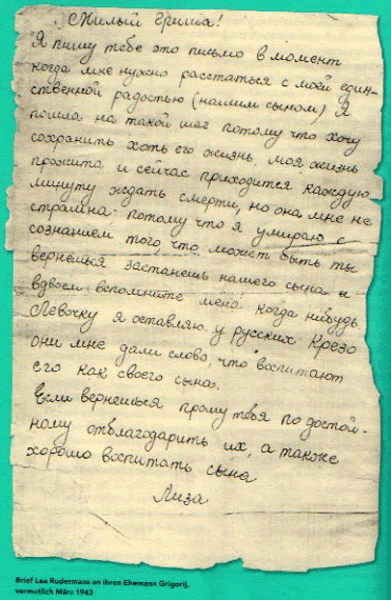 Милый Гриша!
Я пишу тебе это письмо в момент
когда мне нужно расстаться с моей един-
ственной радостью (нашим сыном) Я
пошла на такой шаг потому что хочу
сохранить хоть его жизнь, моя жизнь
прожита и сейчас приходится каждую
минуту ждать смерти, но она мне не
страшна потому что я умираю с
сознанием того, что может быть ты
вернешься застанешь нашего сына и
вдвоем вспомните меня когда нибудь
Левочку я оставляю у русских Крезо
они мне дали слово, что воспитают
его как своего сына.
Если вернешься прошу тебя по достой-
ному отблагодарить их, а также
хорошо воспитать сына
Лиза
Brief Lea Rudermans an ihren Ehemann Grigorij,
vermutlich März 1943